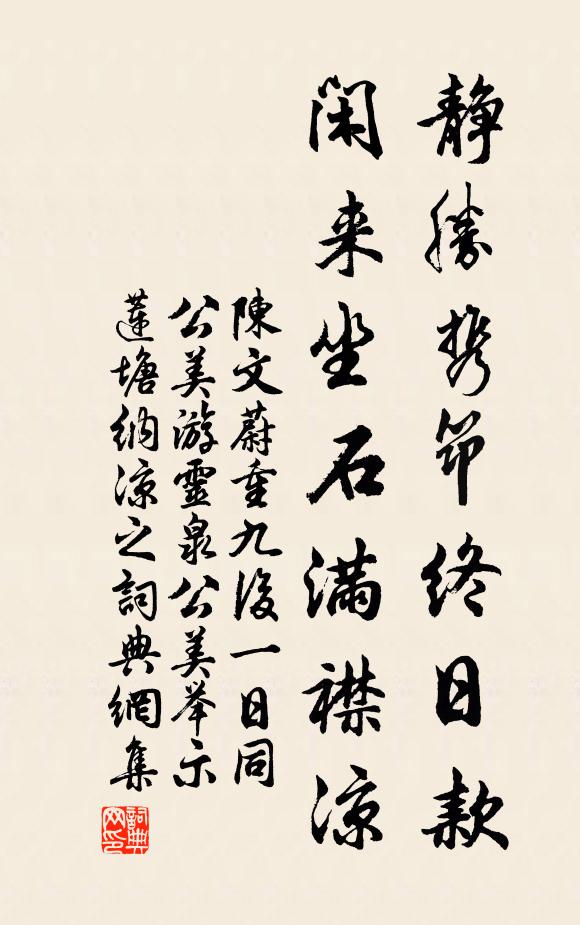 静勝携笻終日款
閑来坐石滿襟涼
陳文蔚重九後一日同
公美游靈泉公美举示
蓮塘納凉之詞典網集
詞典
网印